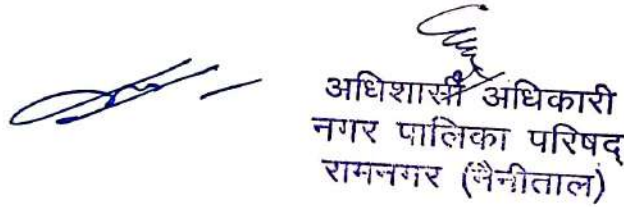 अधिशासी अधिकारी
नगर पालिका परिषद्
रामनगर (नैनीताल)